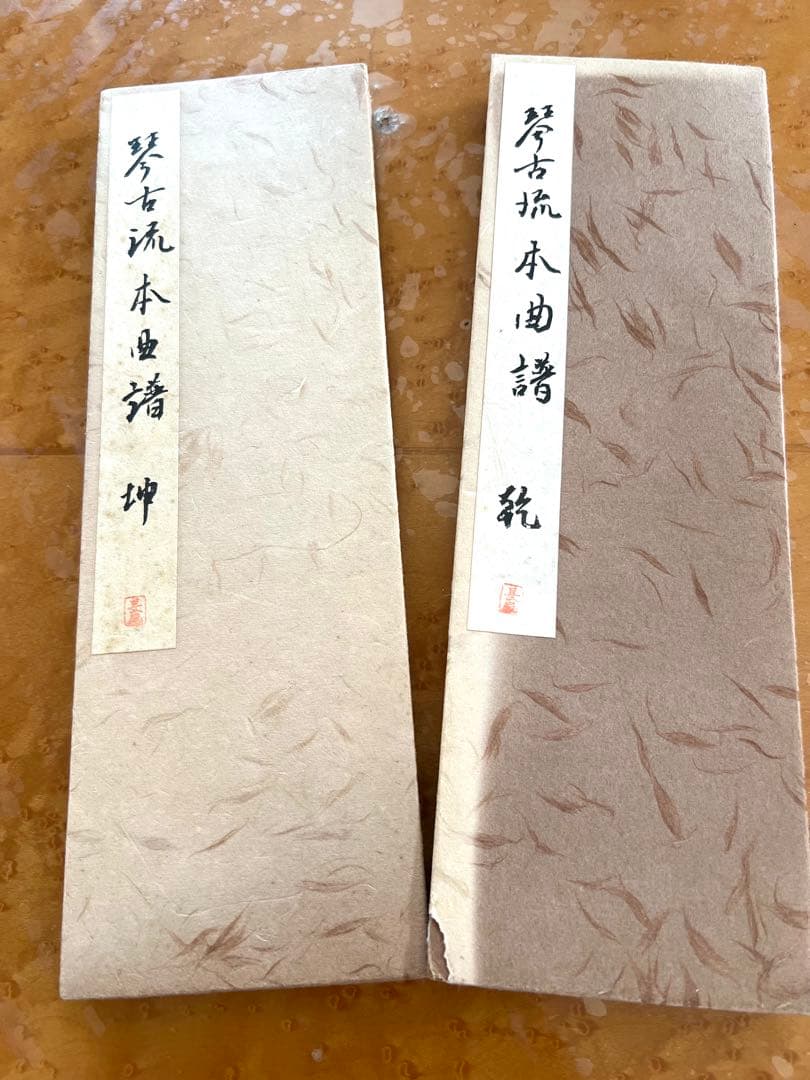 琴古流本曲譜 乾
琴古流本曲譜 坤